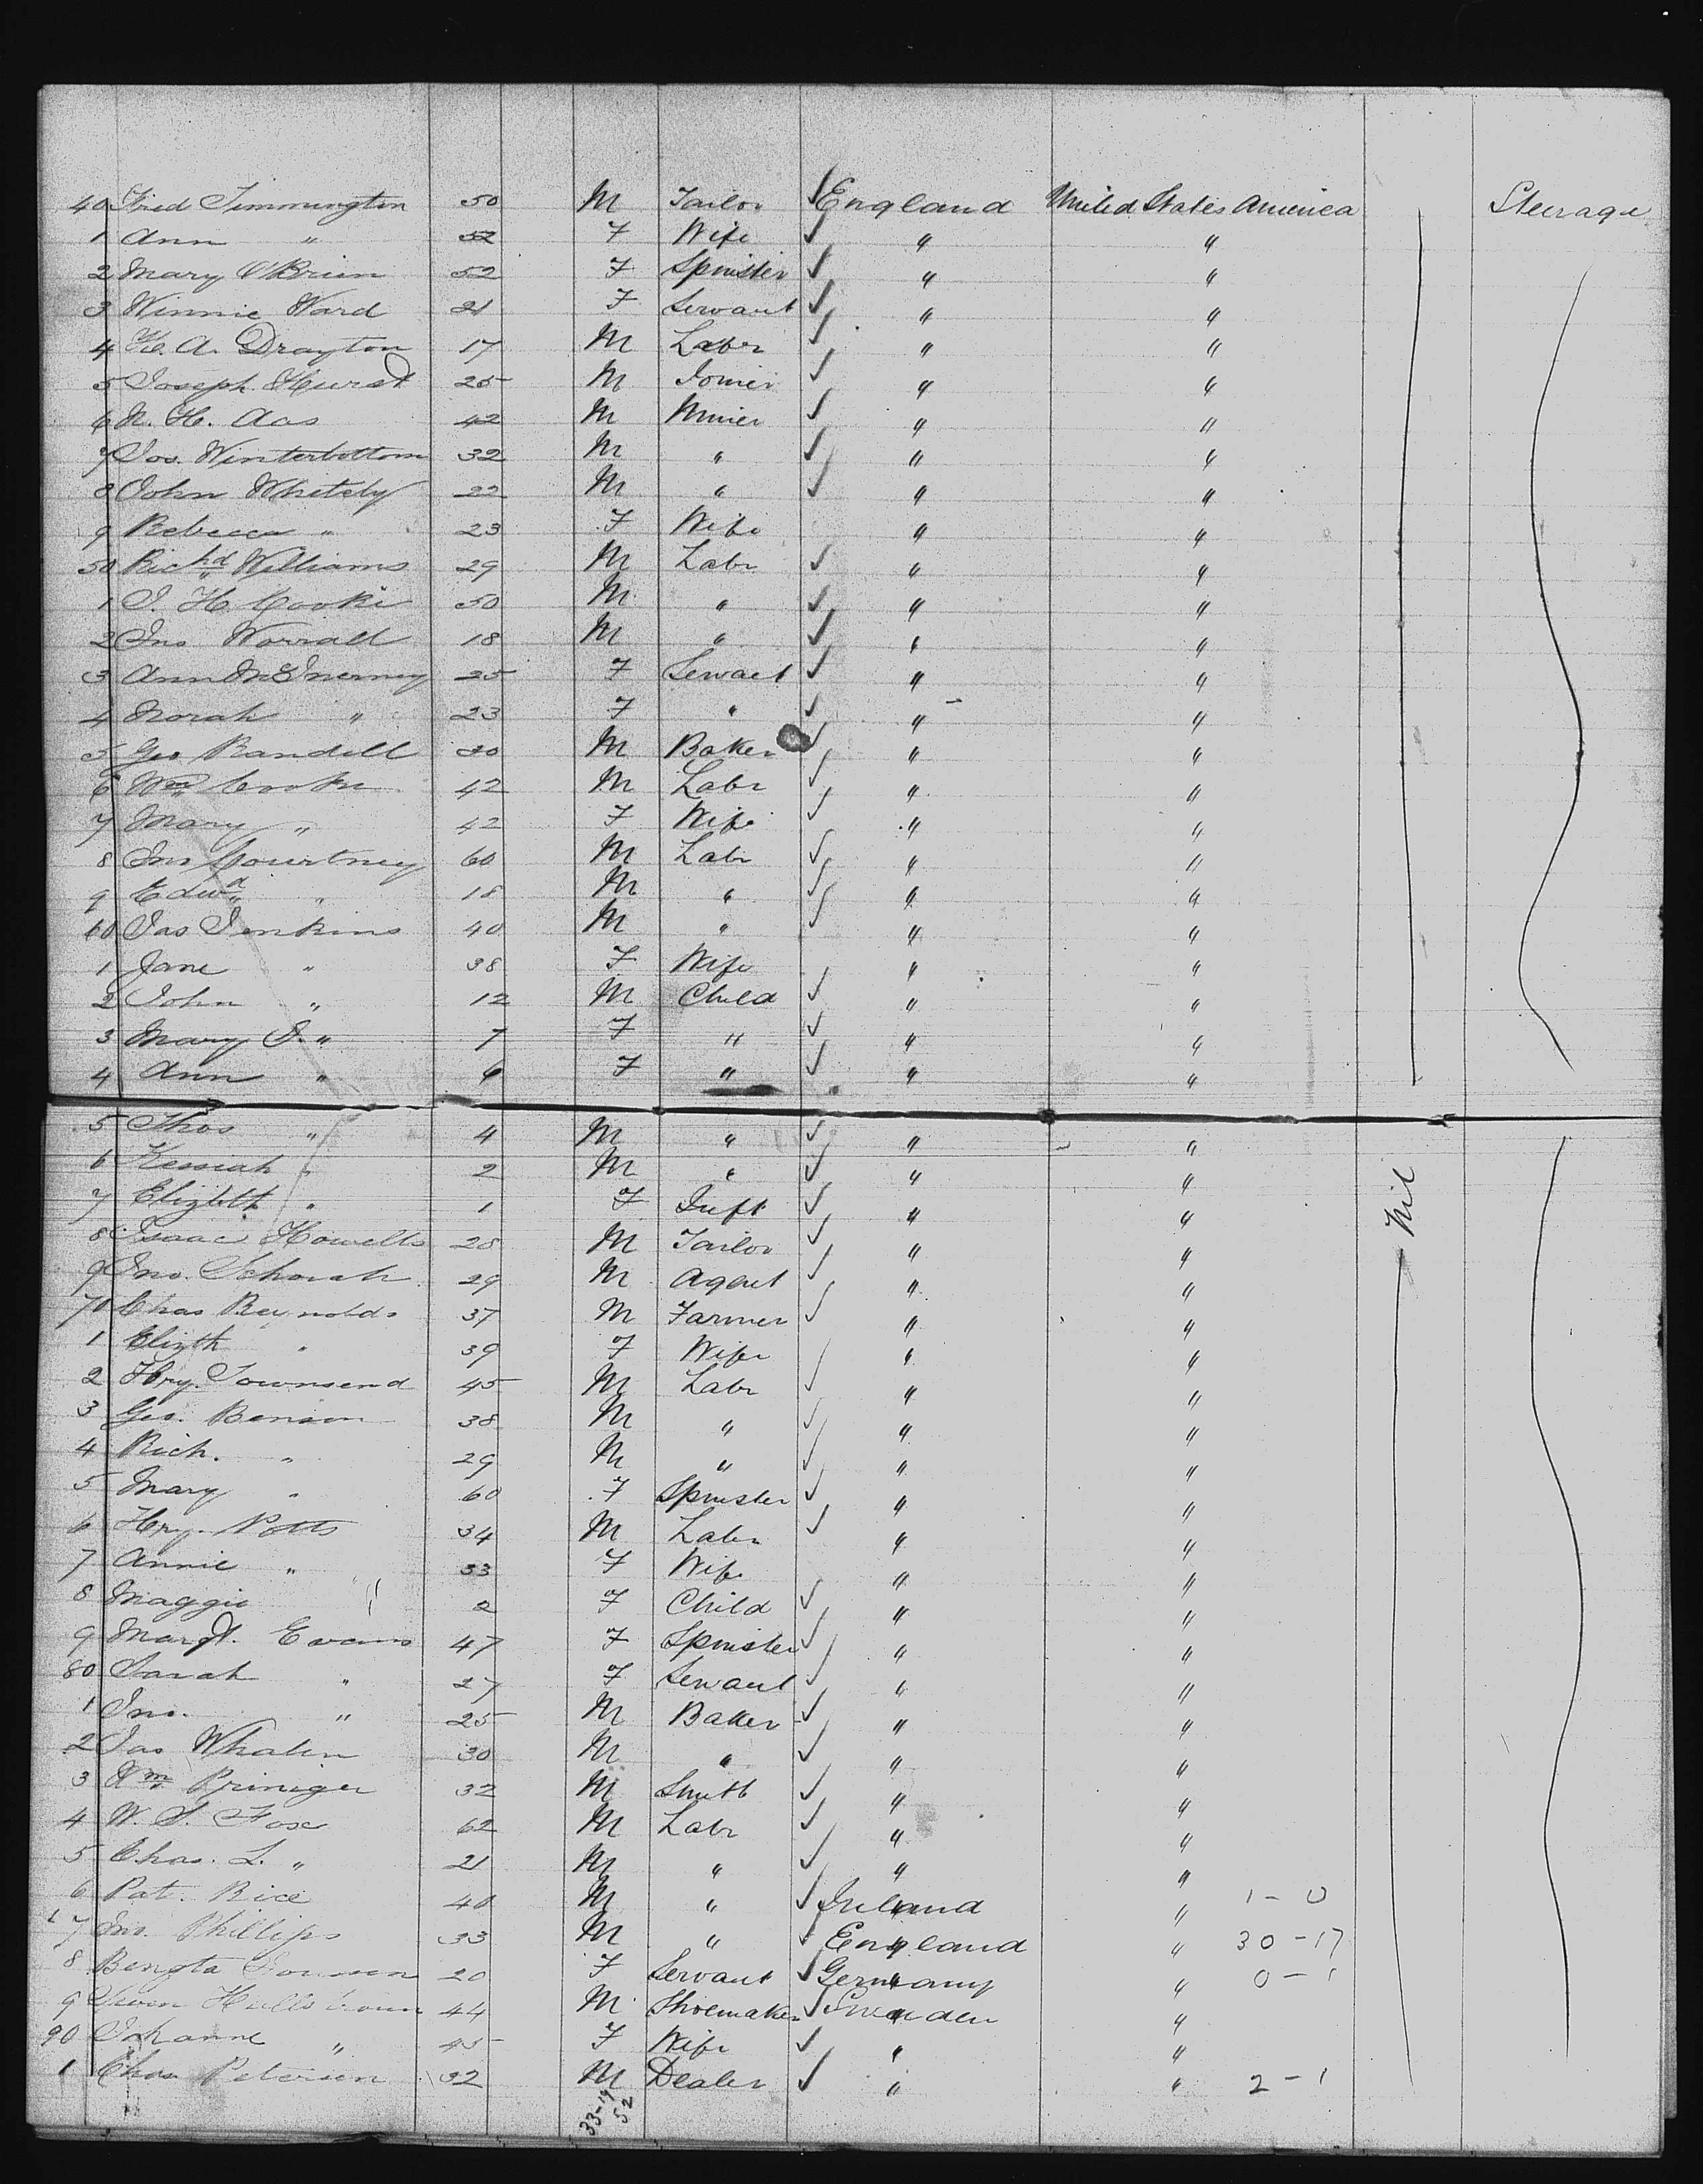 40 Fred Timmington 50 M Tailor ✓ England United States America Steerage
1 Ann " 52 F Wife ✓ " "
2 Mary O'Brien 52 F Spinster ✓ " "
3 Winnie Ward 21 F Servant ✓ " "
4 H. A. Drayton 17 M Labr ✓ " "
5 Joseph Hurst 25 M Joiner ✓ " "
6 N. H. Aas 42 M Miner ✓ " "
7 Jos. Winterbottom 32 M " ✓ " "
8 John Whitely 22 M " ✓ " "
9 Rebecca " 23 F Wife " "
50 Richd Williams 29 M Labr ✓ " "
1 J. H. Cooke 50 M " ✓ " "
2 Jno Worrall 18 M " ✓ " "
3 Ann McInerney 25 F Servant ✓ " "
4 Norah " 23 F " ✓ " "
5 Geo Randell M Baker ✓ " "
6 Wm Cooke 42 M Labr ✓ " "
7 Mary " 42 F Wife ✓ " "
8 Jno Courtney 60 M Labr ✓ " "
9 Edwd " 18 M " ✓ " "
60 Jas Jenkins 40 M " ✓ " "
1 Jane " 38 F Wife " "
2 John " 12 M Child ✓ " "
3 Mary J. " 7 F " ✓ " "
4 Ann " 6 F " ✓ " "
5 Thos " 4 M " ✓ " "
6 Kessiah " 2 M " ✓ " " Nil
7 Elizbth " 1 F Inft ✓ " "
8 Isaac Howells 28 M Tailor ✓ " "
9 Jno. Schorah 29 M Agent ✓ " "
70 Chas Reynolds 37 M Farmer ✓ " "
1 Elizth " 39 F Wife ✓ " "
2 Hry. Townsend 45 M Labr ✓ " "
3 Geo. Benson 38 M " ✓ " "
4 Rich. " 29 M " ✓ " "
5 Mary " 60 F Spinster ✓ " "
6 Hry. Potts 34 M Labr ✓ " "
7 Annie " 33 F Wife " "
8 Maggie " 2 F Child ✓ " "
9 Margt. Evans 47 F Spinster ✓ " "
80 Sarah " 27 F Servant ✓ " "
1 Jno. " 25 M Baker ✓ " "
2 Jas Whalen 30 M " ✓ " "
3 Wm Priniger 32 M Smith ✓ " "
4 W. S. Fox 62 M Labr ✓ " "
5 Chas. L. " 21 M " ✓ " "
6 Pat. Rice 40 M " ✓ Ireland " 1 - 0
7 Jno. Phillips 33 M " ✓ England " 30 - 17
8 Bengta 20 F Servant ✓ Germany " 0 - 1
9 44 M Shoemaker ✓ Sweden "
90 Johanne " 45 F Wife ✓ " "
1 Chas Petersen 32 M Dealer ✓ " " 2 - 1
33-19
52